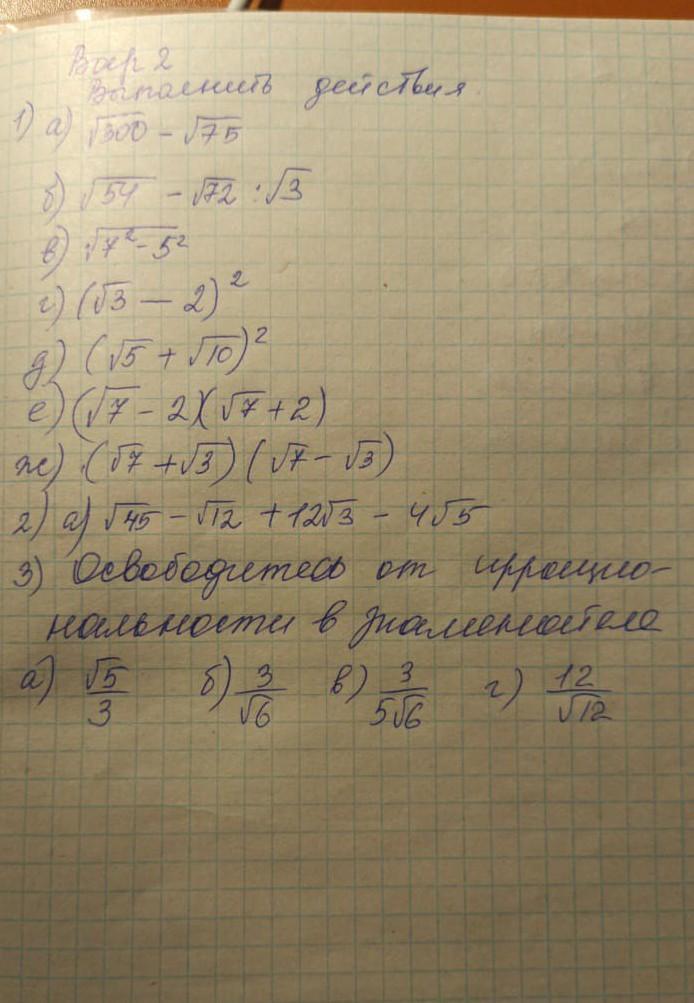 Вар 2
Выполнить действия.
1) а) √300 - √75
б) √54 - √72 : √3
в) √7² - 5²
г) (√3 - 2)²
д) (√5 + √10)²
е) (√7 - 2)(√7 + 2)
ж) (√7 + √3) (√7 - √3)
2) а) √45 - √12 + 12√3 - 4√5
3) Освободитесь от иррацио-
нальности в знаменателе
а) √5/3 б) 3/√6 в) 3/5√6 г) 12/√12